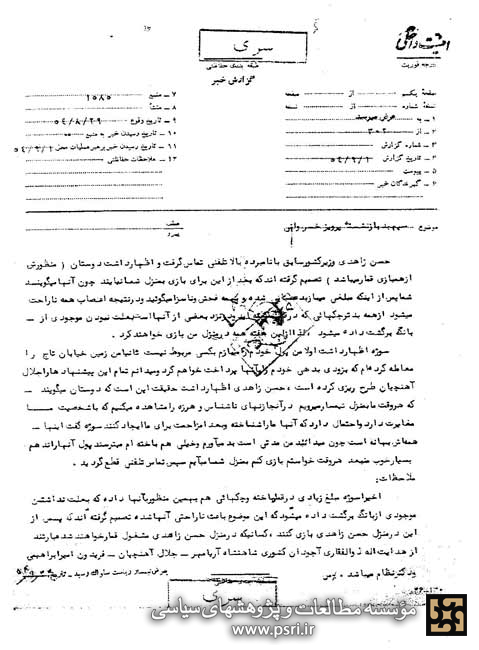 سری
طبقه بندی حفاظتی
گزارش خبر
درجه فوریت
صفحه یکم از صفحه
نسخه شماره از نسخه
۱ـ به عرض میرسد
۲ـ از ۳۰۲
۳ـ شماره گزارش
۴ـ تاریخ گزارش
۵ـ پیوست
۶ـ گیرندگان خبر
۷ـ منبع ۱۰۸۵
۸ـ منشأ
۹ـ تاریخ وقوع ۵۴/۸/۲۹
۱۰ـ تاریخ رسیدن خبر به منبع
۱۱ـ تاریخ رسیدن خبر برهبر عملیات محل
۱۲ـ ملاحظات حفاظتی
موضوع سپهبد بازنشسته پرویز خسروانی
حسن زاهدی وزیر کشور سابق با نامبرده بالا تلفنی تماس گرفت و اظهار داشت دوستان ( منظورش
از همبازی قمار میباشد ) تصمیم گرفته اند که بعد از این برای بازی بمنزل شما نیایند چون آنها میگویند
شما پس از اینکه مبلغی میبازید شده و همه فحش و ناسزا میگوئید و در نتیجه اعصاب همه ناراحت
میشود از همه بدتر چکهائی که در بعضی از آنها بعلت نبودن موجودی از ـ
بانک برگشت داده میشود لذا از این هفته همه در منزل من بازی خواهند کرد .
سوژه اظهار داشت اولا من پول خودم بکسی مربوط نیست ثانیا من زمین خیابان تاج را
معامله کرده ام که بزودی بدهی خودم را بآنها پرداخت خواهم کرد و میدانم تمام این پیشنهاد ها را جلال
آهنچیان طرح ریزی کرده است ، حسن زاهدی اظهار داشت حقیقت این است که دوستان میگویند ـ
که هر وقت ما بمنزل تیمسار میرویم در آنجا زنهای ناشناس و هرزه را مشاهده میکنیم که با شخصیت ما
مغایرت دارد و احتمال دارد که آنها ما را شناخته و بعد مزاحمت برای ما ایجاد کنند سوژه گفت اینها ـ
همه اش بهانه است چون میدانید من مدتی است بد میآورم و خیلی هم باخته ام میترسند پول آنها را ندهم
بسیار خوب هر وقت خواستم بازی کنم بمنزل شما میآیم سپس تماس تلفنی قطع گردید .
ملاحظات :
اخیرا سوژه مبلغ زیادی در قمار باخته و چکهائی هم بهمین منظور بآنها داده که بعلت نداشتن
موجودی از بانک برگشت داده میشود که این موضوع باعث ناراحتی آنها شده تصمیم گرفته اند که پس از
این در منزل حسن زاهدی بازی کنند ، کسانیکه در منزل حسن زاهدی مشغول قمار خواهند شد عبارتند
از هدایت اله ذوالفقاری آجودان کشوری شاهنشاه آریامهر ـ جلال آهنچیان ـ فریدون امیر ابراهیمی
و دکتر نظام میباشد .
سری
موسسه مطالعات و پژوهشهای سیاسی
www.psri.ir